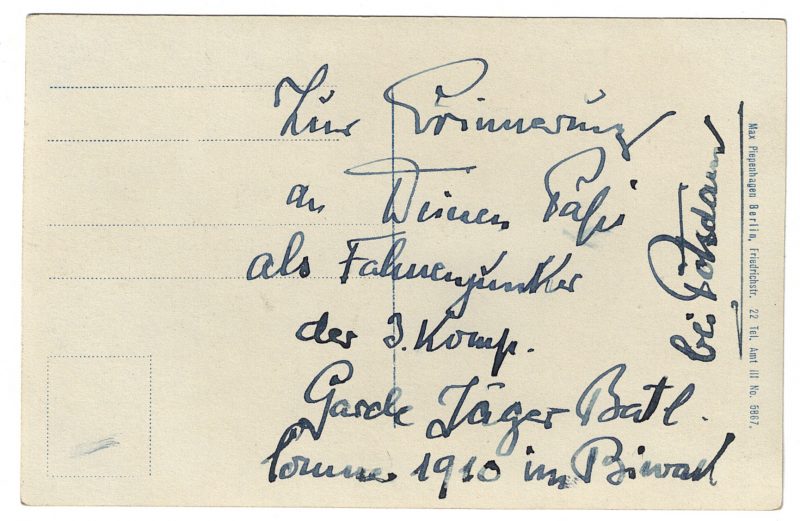 Zur Erinnerung
an Deinen
als Fahnenjunker
der 3. Komp.
Garde Jäger Batl.
Sommer 1910 im Biwak
bei Potsdam
Max Piepenhagen Berlin, Friedrichstr. 22 Tel. Amt III No. 5867.